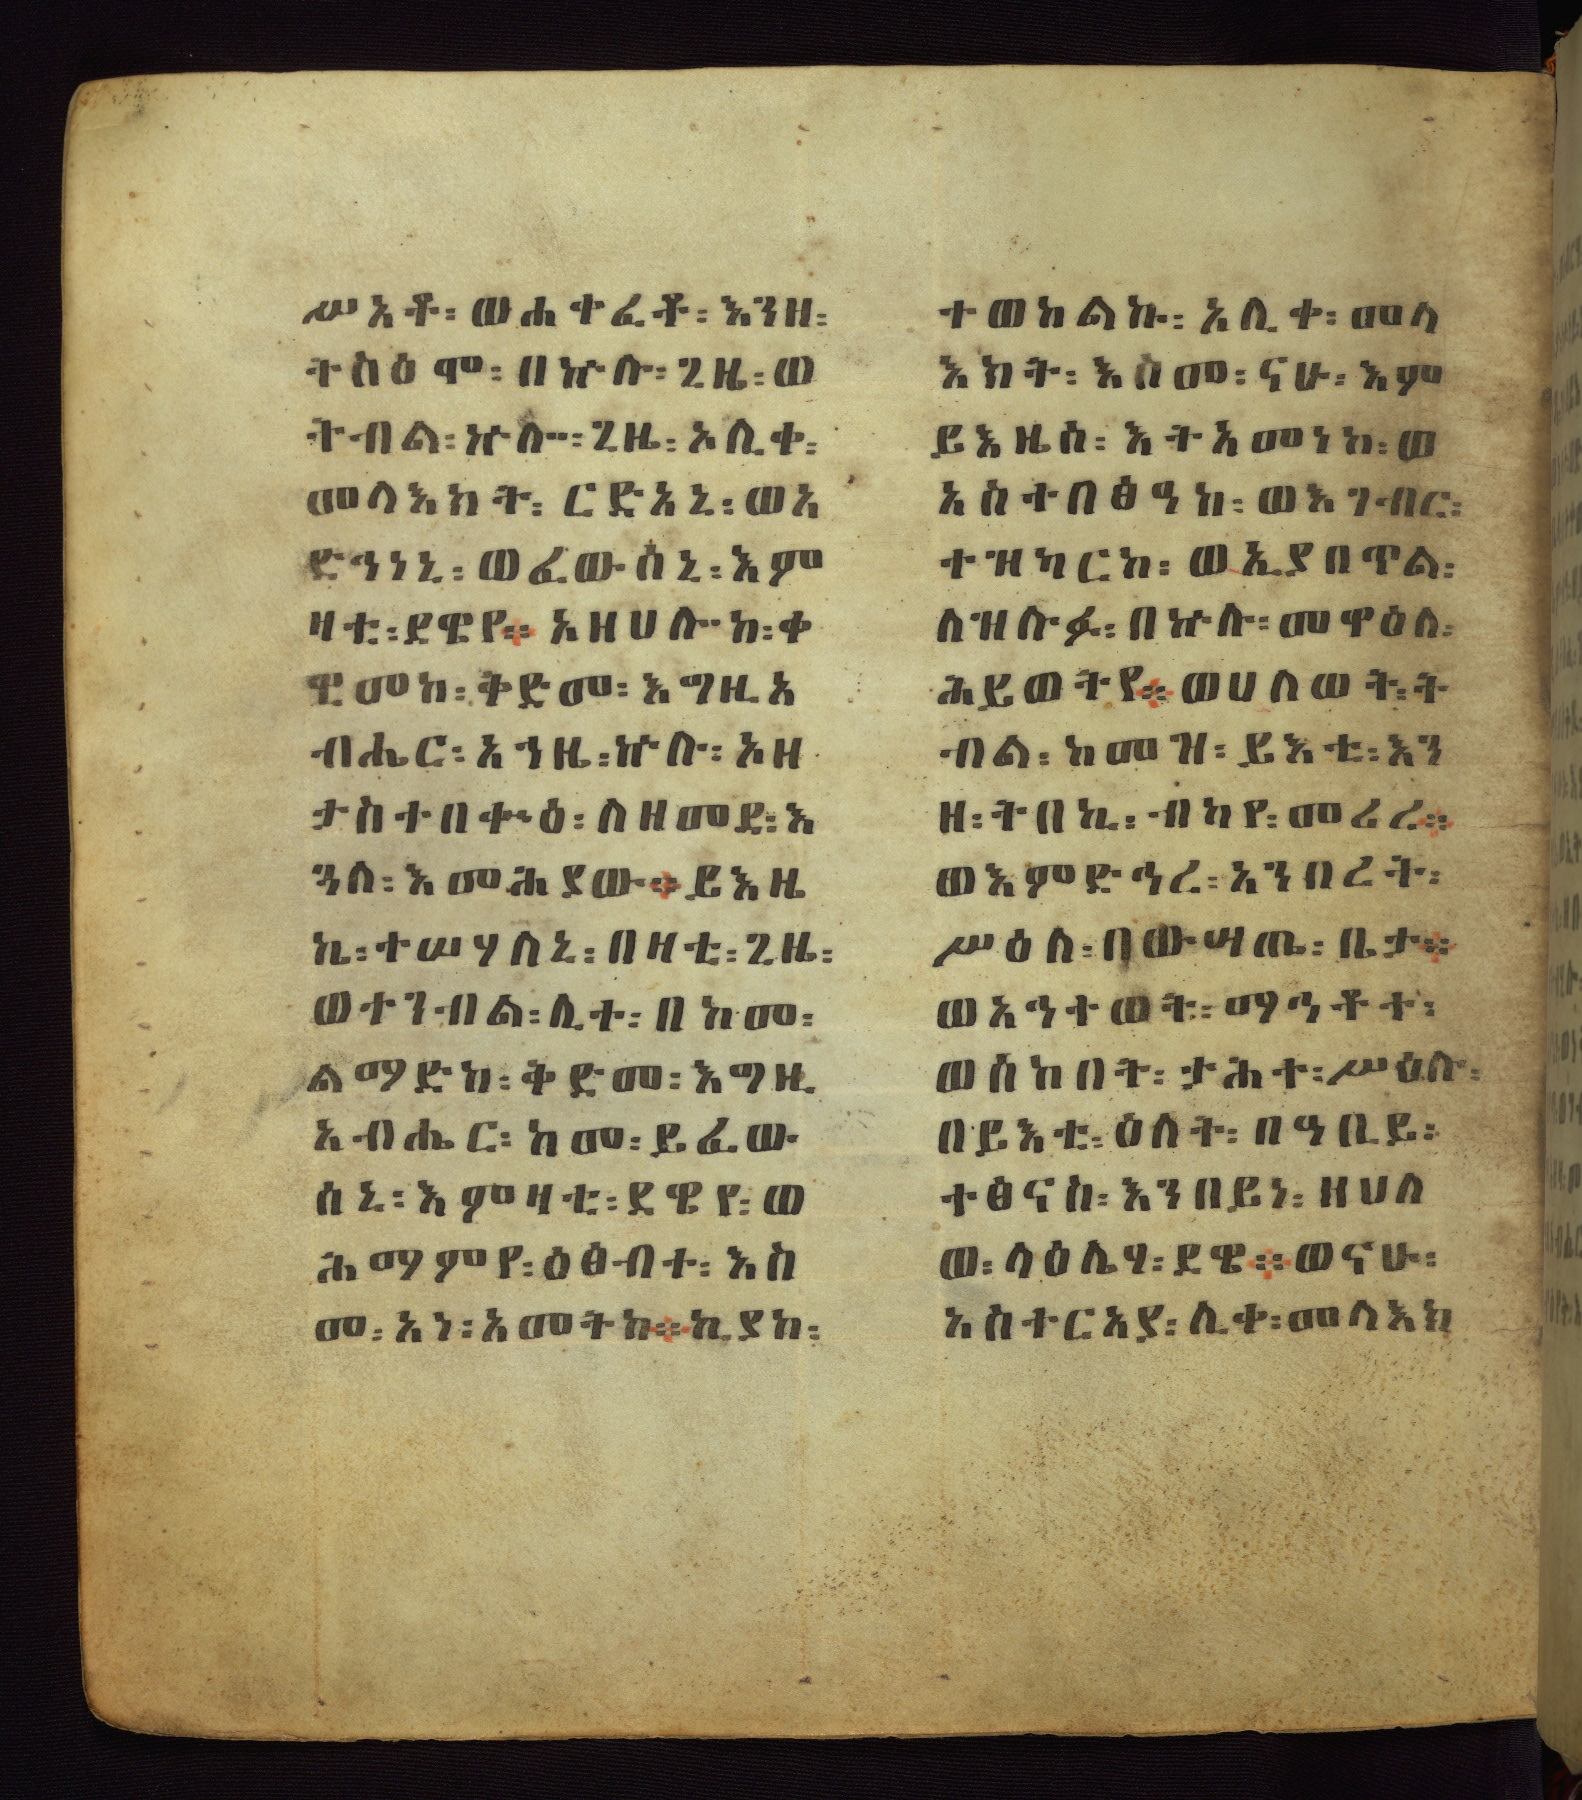 ሥእቶ፡ ወሐቀፈቶ፡ እንዘ፡
ትስዕሞ፡ በኵሉ፡ ጊዜ፡ ወ
ትብል፡ ኵሎ፡ ጊዜ፡ ኦሊቀ፡
መላእክት፡ ርድአኒ፡ ወአ
ድኅነኒ፡ ወፈውሰኒ፡ እም
ዛቲ፡ ደዌየ። አዘሀሎ፡ ከ፡ ቀ
ዊመከ፡ ቅድመ፡ እግዚአ
ብሔር፡ አኀዜ፡ ኵሉ፡ እዘ
ታስተበቍዕ፡ ለዘመደ፡ እ
ጓለ፡ እመሕያው። ይእዜ
ኒ፡ ተሠሃለኒ፡ በዛቲ፡ ጊዜ፡
ወተንብል፡ ሊተ፡ በከመ፡
ልማድከ፡ ቅድመ፡ እግዚ
አብሔር፡ ከመ፡ ይፈው
ሰኒ፡ እምዛቲ፡ ደዌየ፡ ወ
ሕማምየ፡ ዕፁብተ፡ እስ
መ፡ አነ፡ አመትከ። ኪያከ፡
ተወከልኩ፡ ኦሊቀ፡ መላ
እክት፡ እስመ፡ ናሁ፡ እም
ይእዜሰ፡ እትአመነከ፡ ወ
አስተበፅዓከ፡ ወእገብር፡
ተዝካርከ፡ ወኢያበጥል፡
ለዝሉፉ፡ በኵሉ፡ መዋዕለ፡
ሕይወትየ። ወሀለወት፡ ት
ብል፡ ከመዝ፡ ይእቲ፡ እን
ዘ፡ ትበኪ፡ ብካየ፡ መሪረ።
ወእምድኅረ፡ አንበረት፡
ሥዕለ፡ በውሣጤ፡ ቤታ።
ወአኅተወት፡ ማኅቶተ፡
ወሰከበት፡ ታሕተ፡ ሥዕሉ፡
በይእቲ፡ ዕለት፡ በዓቢይ፡
ተፅናስ፡ እንበይነ፡ ዘሀለ
ወ፡ ላዕሌሃ፡ ደዌ። ወናሁ፡
አስተርአያ፡ ሊቀ፡ መላእክ